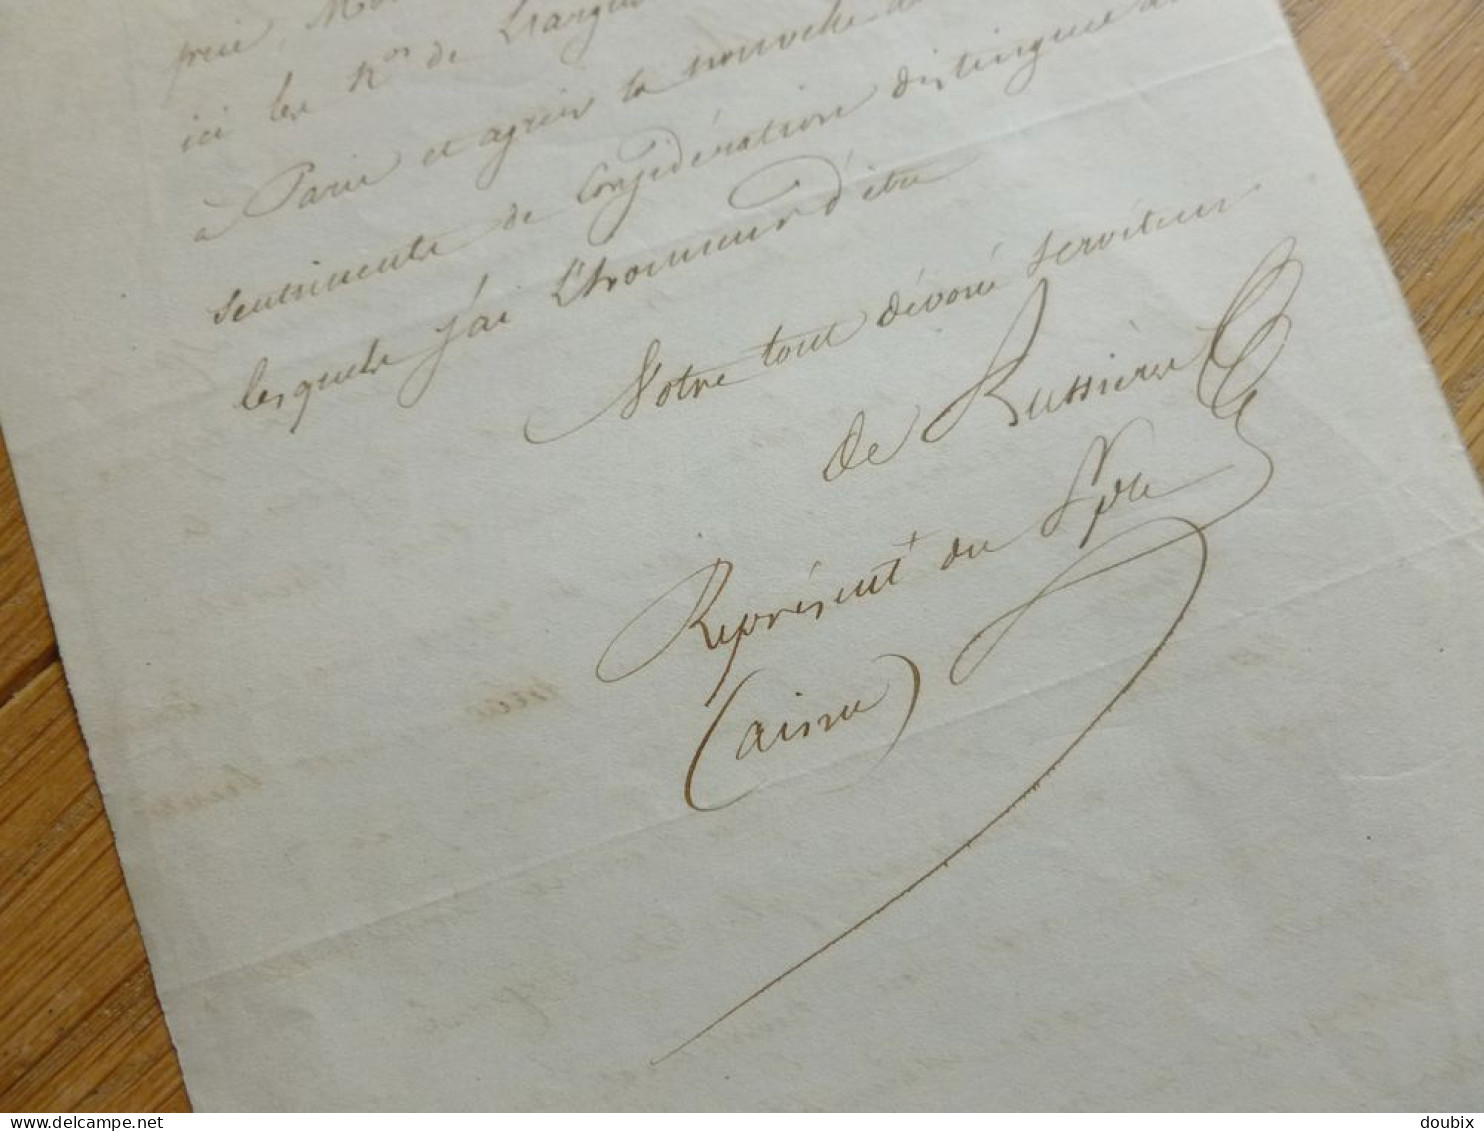 ici les nos de
à Paris et agréer la nouvelle
sentiments de considération distinguée
lesquels j'ai l'honneur d'être
Votre tout dévoué serviteur
de Bussières
Représent^t du Peuple
(aisne)
delcampe.net
doubix